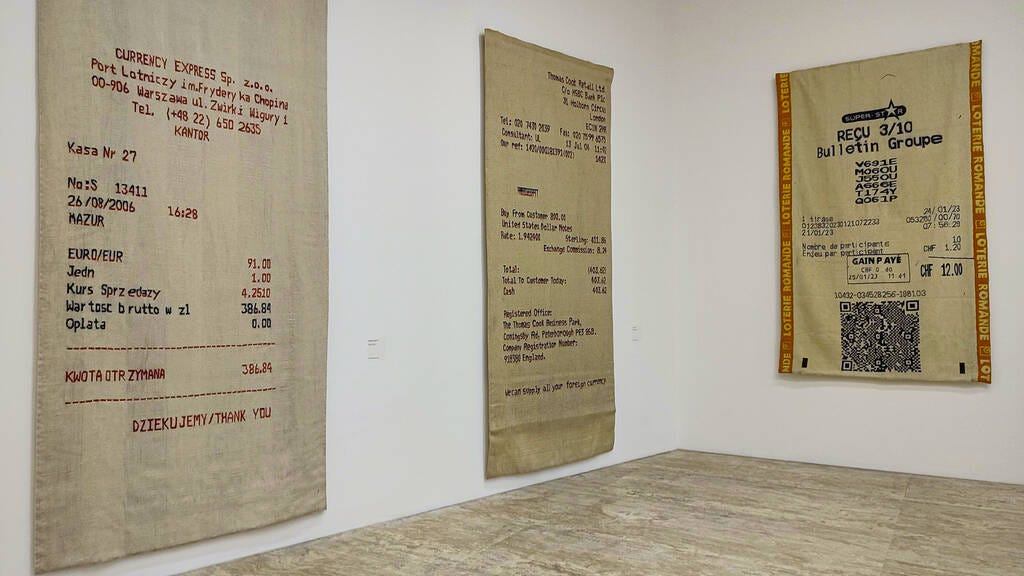 CURRENCY EXPRESS Sp. z.o.o.
Port Lotniczy im.Fryderyka Chopina
00-906 Warszawa ul.Zwirki Wigury 1
TEL. (+48 22) 650 2635
KANTOR
Kasa Nr 27
No:S 13411
26/08/2006 16:28
MAZUR
EURO/EUR 91.00
Jedn 1.00
Kurs Sprzedazy 4.2510
Wartosc brutto w zl 386.84
Oplata 0.00
KWOTA OTRZYMANA 386.84
DZIEKUJEMY/THANK YOU
Thomas Cook Retail Ltd.
C/o HSBC Bank Plc
31 Holborn Circus
London
EC1N 2HR
Tel: 020 7431 2639 Fax: 020 7599 6575
Consultant: LL 13 Jul 04 11:02
Our ref: 1420/
Buy From Customer 800.00
United States Dollar Notes
Rate: 1.942401 Sterling: 411.86
Exchange Commission: 8.24
Total: (403.62)
Total To Customer Today: 403.62
Cash 403.62
Registered Office:
The Thomas Cook Business Park,
Coningsby Rd, Peterborough PE3 8SB.
Company Registration Number:
England.
We can supply all your foreign currency
SUPER-STAR
REÇU 3/10
Bulletin Groupe
V691E
M060U
J550U
A666E
T174Y
Q061P
24/01/23
1 tirage
07:56:29
21/01/23
Nombre de participants 10
Enjeu par participant CHF 1.20
GAIN PAYÉ
CHF 0.40
25/01/23 11:41
CHF 12.00
10432-034528256-198103
LOTERIE ROMANDE
LOTERIE ROMANDE